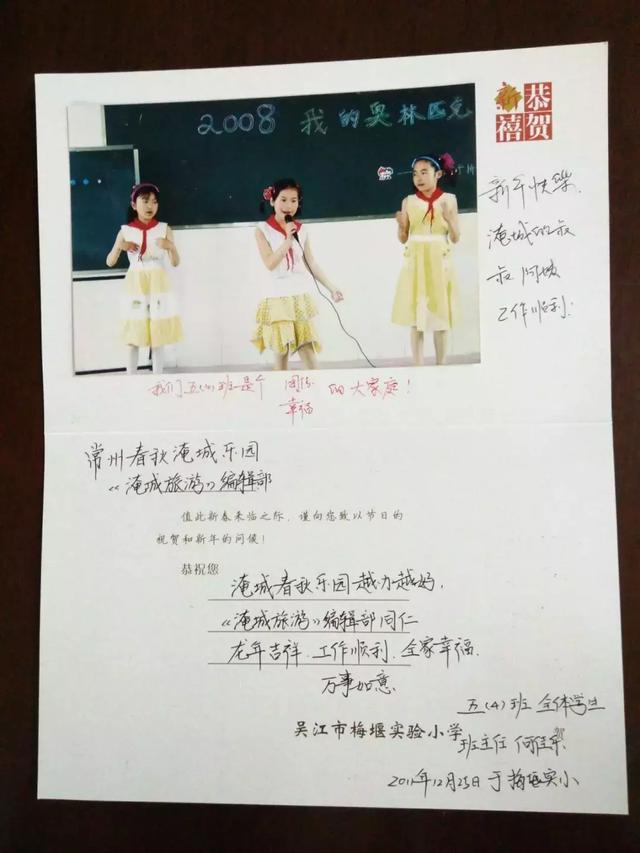 2008 我的奥林匹克
恭贺
新禧
新年快乐.
淹城的叔
叔阿姨
工作顺利!
我们五(4)班是个 团结 的大家庭!
幸福
常州春秋淹城乐园
《淹城旅游》编辑部
值此新春来临之际,谨向您致以节日的
祝贺和新年的问候!
恭祝您
淹城春秋乐园越办越好,
《淹城旅游》编辑部同仁
龙年吉祥、工作顺利、全家幸福.
万事如意
五(4)班 全体学生
吴江市梅堰实验小学
班主任
2011年12月25日于梅堰实小